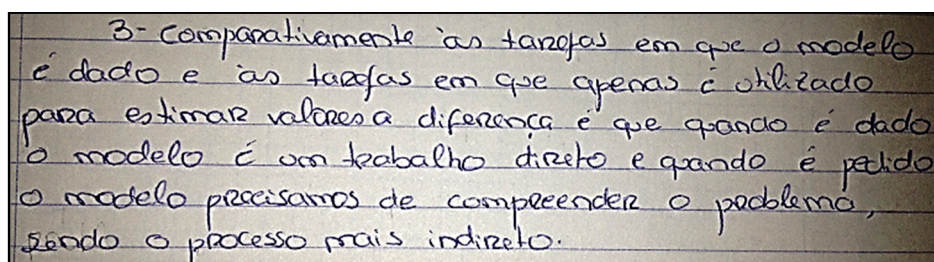 3- Comparativamente às tarefas em que o modelo
é dado e às tarefas em que apenas é utilizado
para estimar valores a diferença é que quando é dado
o modelo é um trabalho direto e quando é pedido
o modelo precisamos de compreender o problema,
sendo o processo mais indireto.